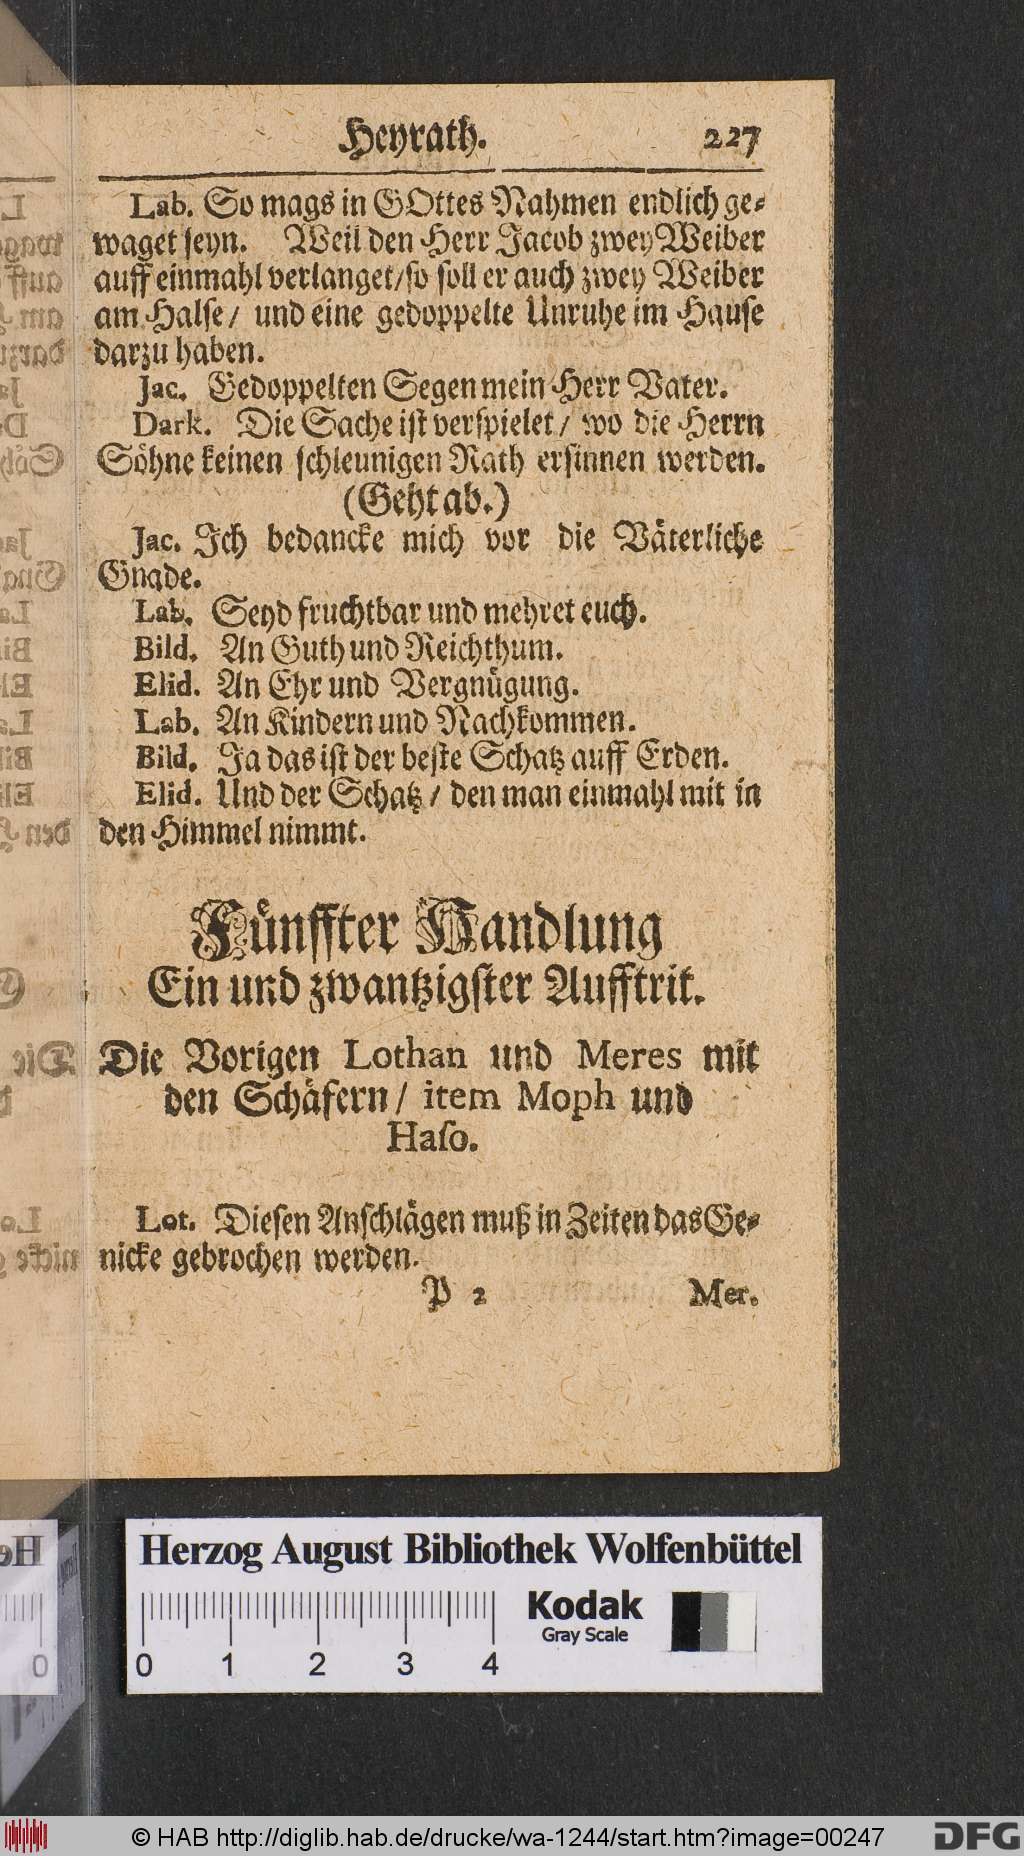 Heyrath. 227
Lab. So mags in GOttes Nahmen endlich ge-
waget seyn. Weil den Herr Jacob zwey Weiber
auff einmahl verlanget/ so soll er auch zwey Weiber
am Halse/ und eine gedoppelte Unruhe im Hause
darzu haben.
Jac. Gedoppelten Segen mein Herr Vater.
Dark. Die Sache ist verspielet/ wo die Herrn
Söhne keinen schleunigen Rath ersinnen werden.
(Geht ab.)
Jac. Ich bedancke mich vor die Väterliche
Gnade.
Lab. Seyd fruchtbar und mehret euch.
Bild. An Guth und Reichthum.
Elid. An Ehr und Vergnügung.
Lab. An Kindern und Nachkommen.
Bild. Ja das ist der beste Schatz auff Erden.
Elid. Und der Schatz/ den man einmahl mit in
den Himmel nimmt.
Fünffter Handlung
Ein und zwantzigster Aufftrit.
Die Vorigen Lothan und Meres mit
den Schäfern/ item Moph und
Haso.
Lot. Diesen Anschlägen muß in Zeiten das Ge-
nicke gebrochen werden.
P 2 Mer.
Herzog August Bibliothek Wolfenbüttel
Kodak
Gray Scale
0 1 2 3 4
© HAB http://diglib.hab.de/drucke/wa-1244/start.htm?image=00247
DFG